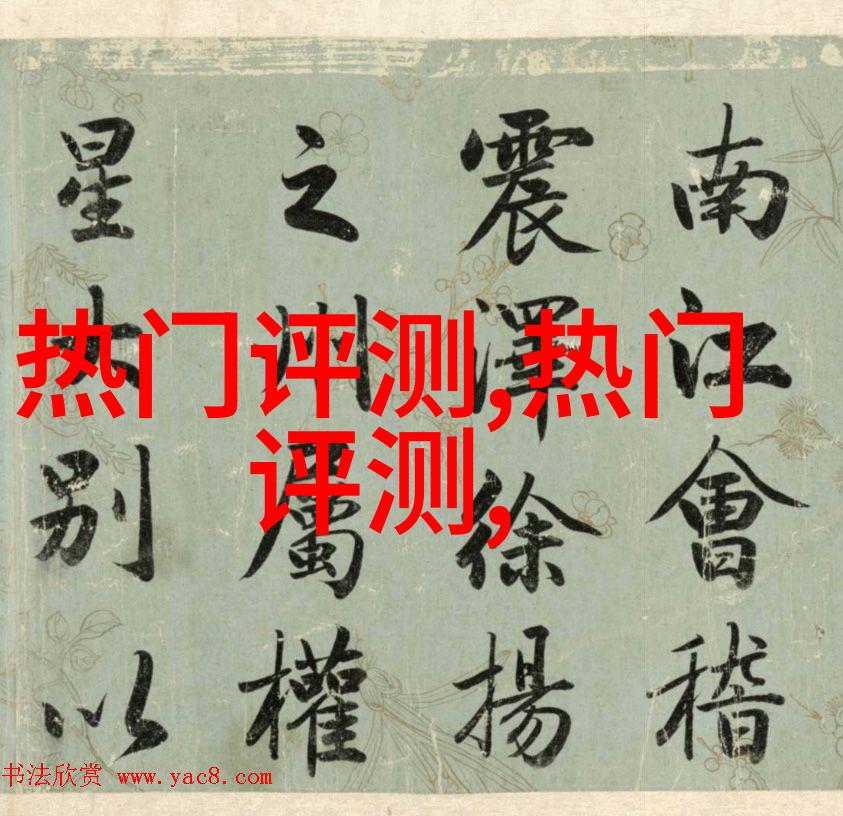 南江會稽
震澤徐揚
之洲屬權
星別以
热门评测,热门
评测,
书法欣赏 www.yac8.com